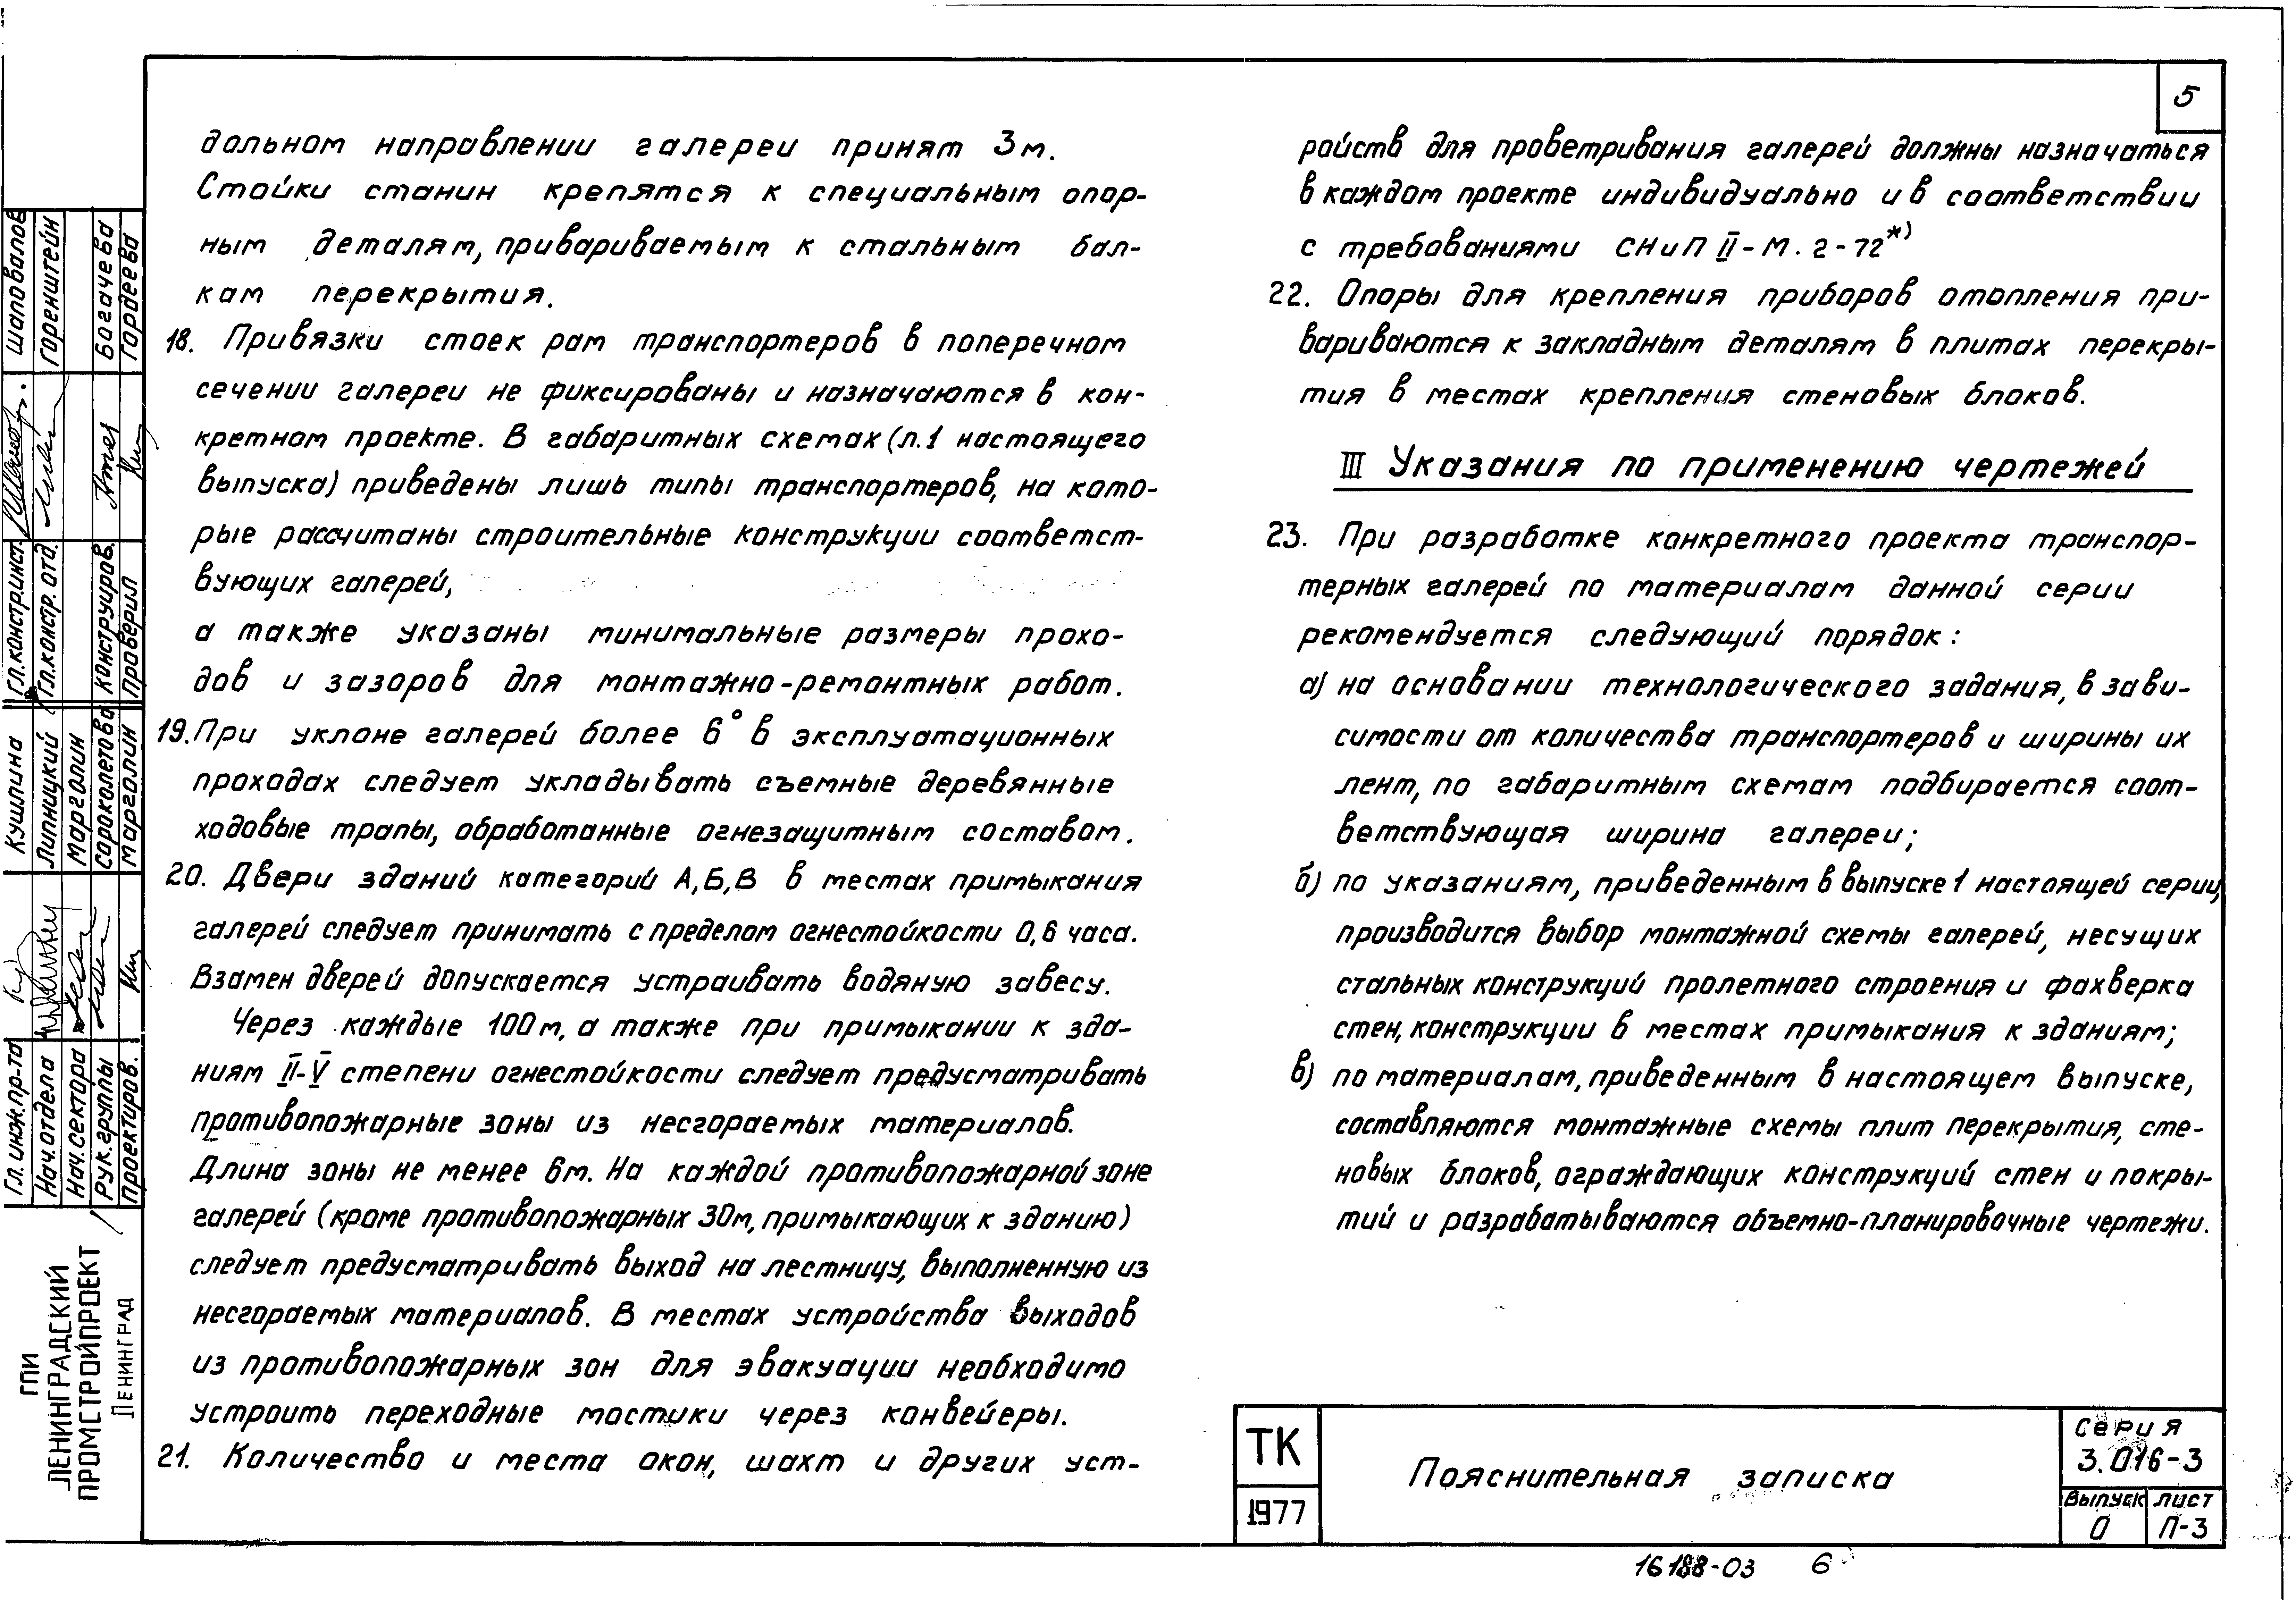 5
дольном направлении галереи принят 3 м.
Стойки станин крепятся к специальным опор-
ным деталям, привариваемым к стальным бал-
кам перекрытия.
18. Привязки стоек рам транспортеров в поперечном
сечении галереи не фиксированы и назначаются в кон-
кретном проекте. В габаритных схемах (л.1 настоящего
выпуска) приведены лишь типы транспортеров, на кото-
рые рассчитаны строительные конструкции соответст-
вующих галерей,
а также указаны минимальные размеры прохо-
дов и зазоров для монтажно-ремонтных работ.
19. При уклоне галерей более 6° в эксплуатационных
проходах следует укладывать съемные деревянные
ходовые трапы, обработанные огнезащитным составом.
20. Двери зданий категорий А,Б,В в местах примыкания
галерей следует принимать с пределом огнестойкости 0,6 часа.
Взамен дверей допускается устраивать водяную завесу.
Через каждые 100 м, а также при примыкании к зда-
ниям II-V степени огнестойкости следует предусматривать
противопожарные зоны из несгораемых материалов.
Длина зоны не менее 6 м. На каждой противопожарной зоне
галерей (кроме противопожарных 30м, примыкающих к зданию)
следует предусматривать выход на лестницу, выполненную из
несгораемых материалов. В местах устройства выходов
из противопожарных зон для эвакуации необходимо
устроить переходные мостики через конвейеры.
21. Количество и места окон, шахт и других уст-
ройств для проветривания галерей должны назначаться
в каждом проекте индивидуально и в соответствии
с требованиями СНиП II-М.2-72*)
22. Опоры для крепления приборов отопления при-
вариваются к закладным деталям в плитах перекры-
тия в местах крепления стеновых блоков.
III Указания по применению чертежей
23. При разработке конкретного проекта транспор-
терных галерей по материалам данной серии
рекомендуется следующий порядок:
а) на основании технологического задания, в зави-
симости от количества транспортеров и ширины их
лент, по габаритным схемам подбирается соот-
ветствующая ширина галереи;
б) по указаниям, приведенным в выпуске 1 настоящей серии,
производится выбор монтажной схемы галерей, несущих
стальных конструкций пролетного строения и фахверка
стен, конструкции в местах примыкания к зданиям;
в) по материалам, приведенным в настоящем выпуске,
составляются монтажные схемы плит перекрытия, сте-
новых блоков, ограждающих конструкций стен и покры-
тий и разрабатываются объемно-планировочные чертежи.
ТК
1977
Пояснительная записка
Серия
3.016-3
Выпуск лист
0 П-3
16188-03 6
Гл. инж. пр-та Кушлина Гл. констр. инст. Шаповалов
Нач. отдела Липницкий Гл. констр. отд. Горенштейн
Нач. сектора Марголин
Рук. группы Сороколетова Конструиров. Богачева
Проектиров. Марголин Проверил Гордеева
ГПИ
ЛЕНИНГРАДСКИЙ
ПРОМСТРОЙПРОЕКТ
ЛЕНИНГРАД